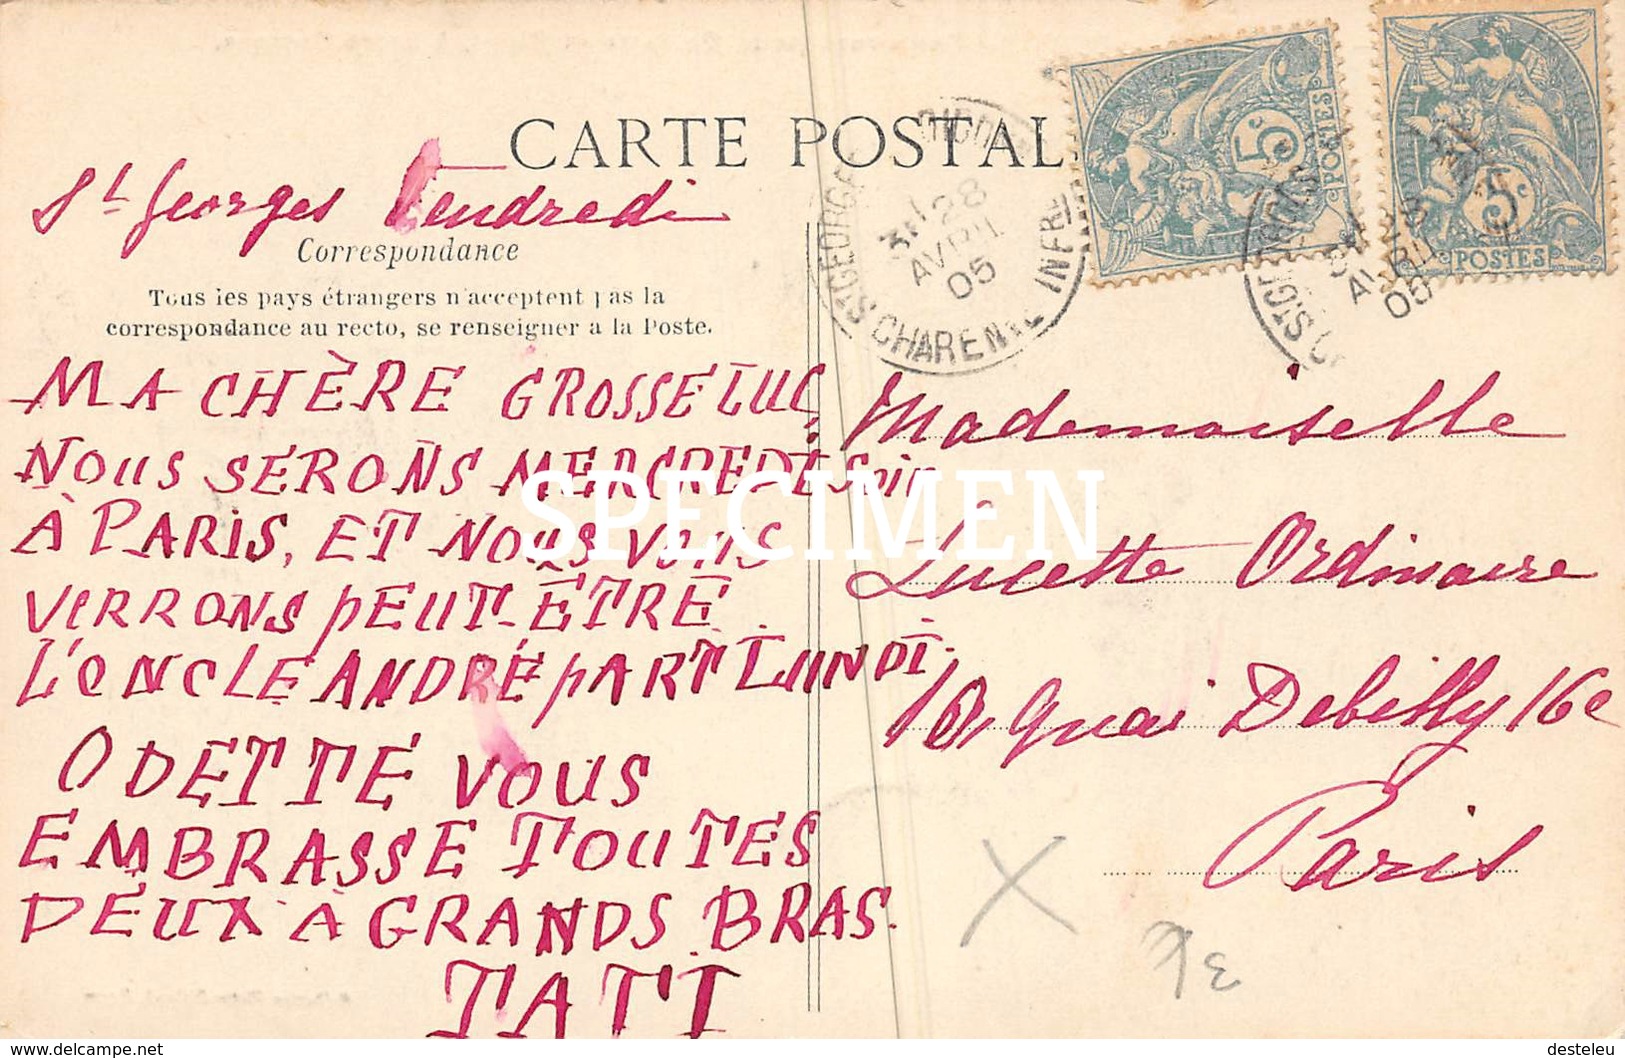 CARTE POSTAL
St Georges Vendredi
Correspondance
Tous les pays étrangers n'acceptent pas la
correspondance au recto, se renseigner a la Poste.
MA CHÈRE GROSSE LUC,
NOUS SERONS MERCREDI Soir
À PARIS, ET NOUS VOUS
VERRONS PEUT-ÊTRE
L'ONCLE ANDRÉ PART LUNDI.
ODETTE VOUS
EMBRASSE TOUTES
DEUX À GRANDS BRAS.
TATI
Mademoiselle
Lucette Ordinaire
10, Quai Debilly 16e
Paris
5c
POSTES
5c
POSTES
28
AVRIL
05
ST GEORGES
CHARENTE INFRE
AVRIL
05
SPECIMEN
www.delcampe.net
desteleu